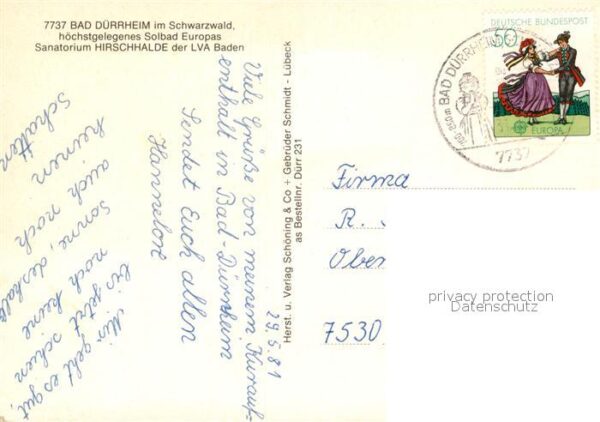 7737 BAD DÜRRHEIM im Schwarzwald,
höchstgelegenes Solbad Europas
Sanatorium HIRSCHHALDE der LVA Baden
29.5.81
Viele Grüße von meinem Kurauf-
enthalt in Bad-Dürrheim
Sendet Euch allen
Hannelore
Mir geht es gut,
bis jetzt schien
noch keine
Sonne, deshalb
auch noch
keinen
Schatten
Herst. u. Verlag Schöning & Co + Gebrüder Schmidt - Lübeck
as Bestellnr. Dürr 231
DEUTSCHE BUNDESPOST
50
EUROPA
BAD DÜRRHEIM
7737
Firma
R.
Ober
7530
privacy protection
Datenschutz